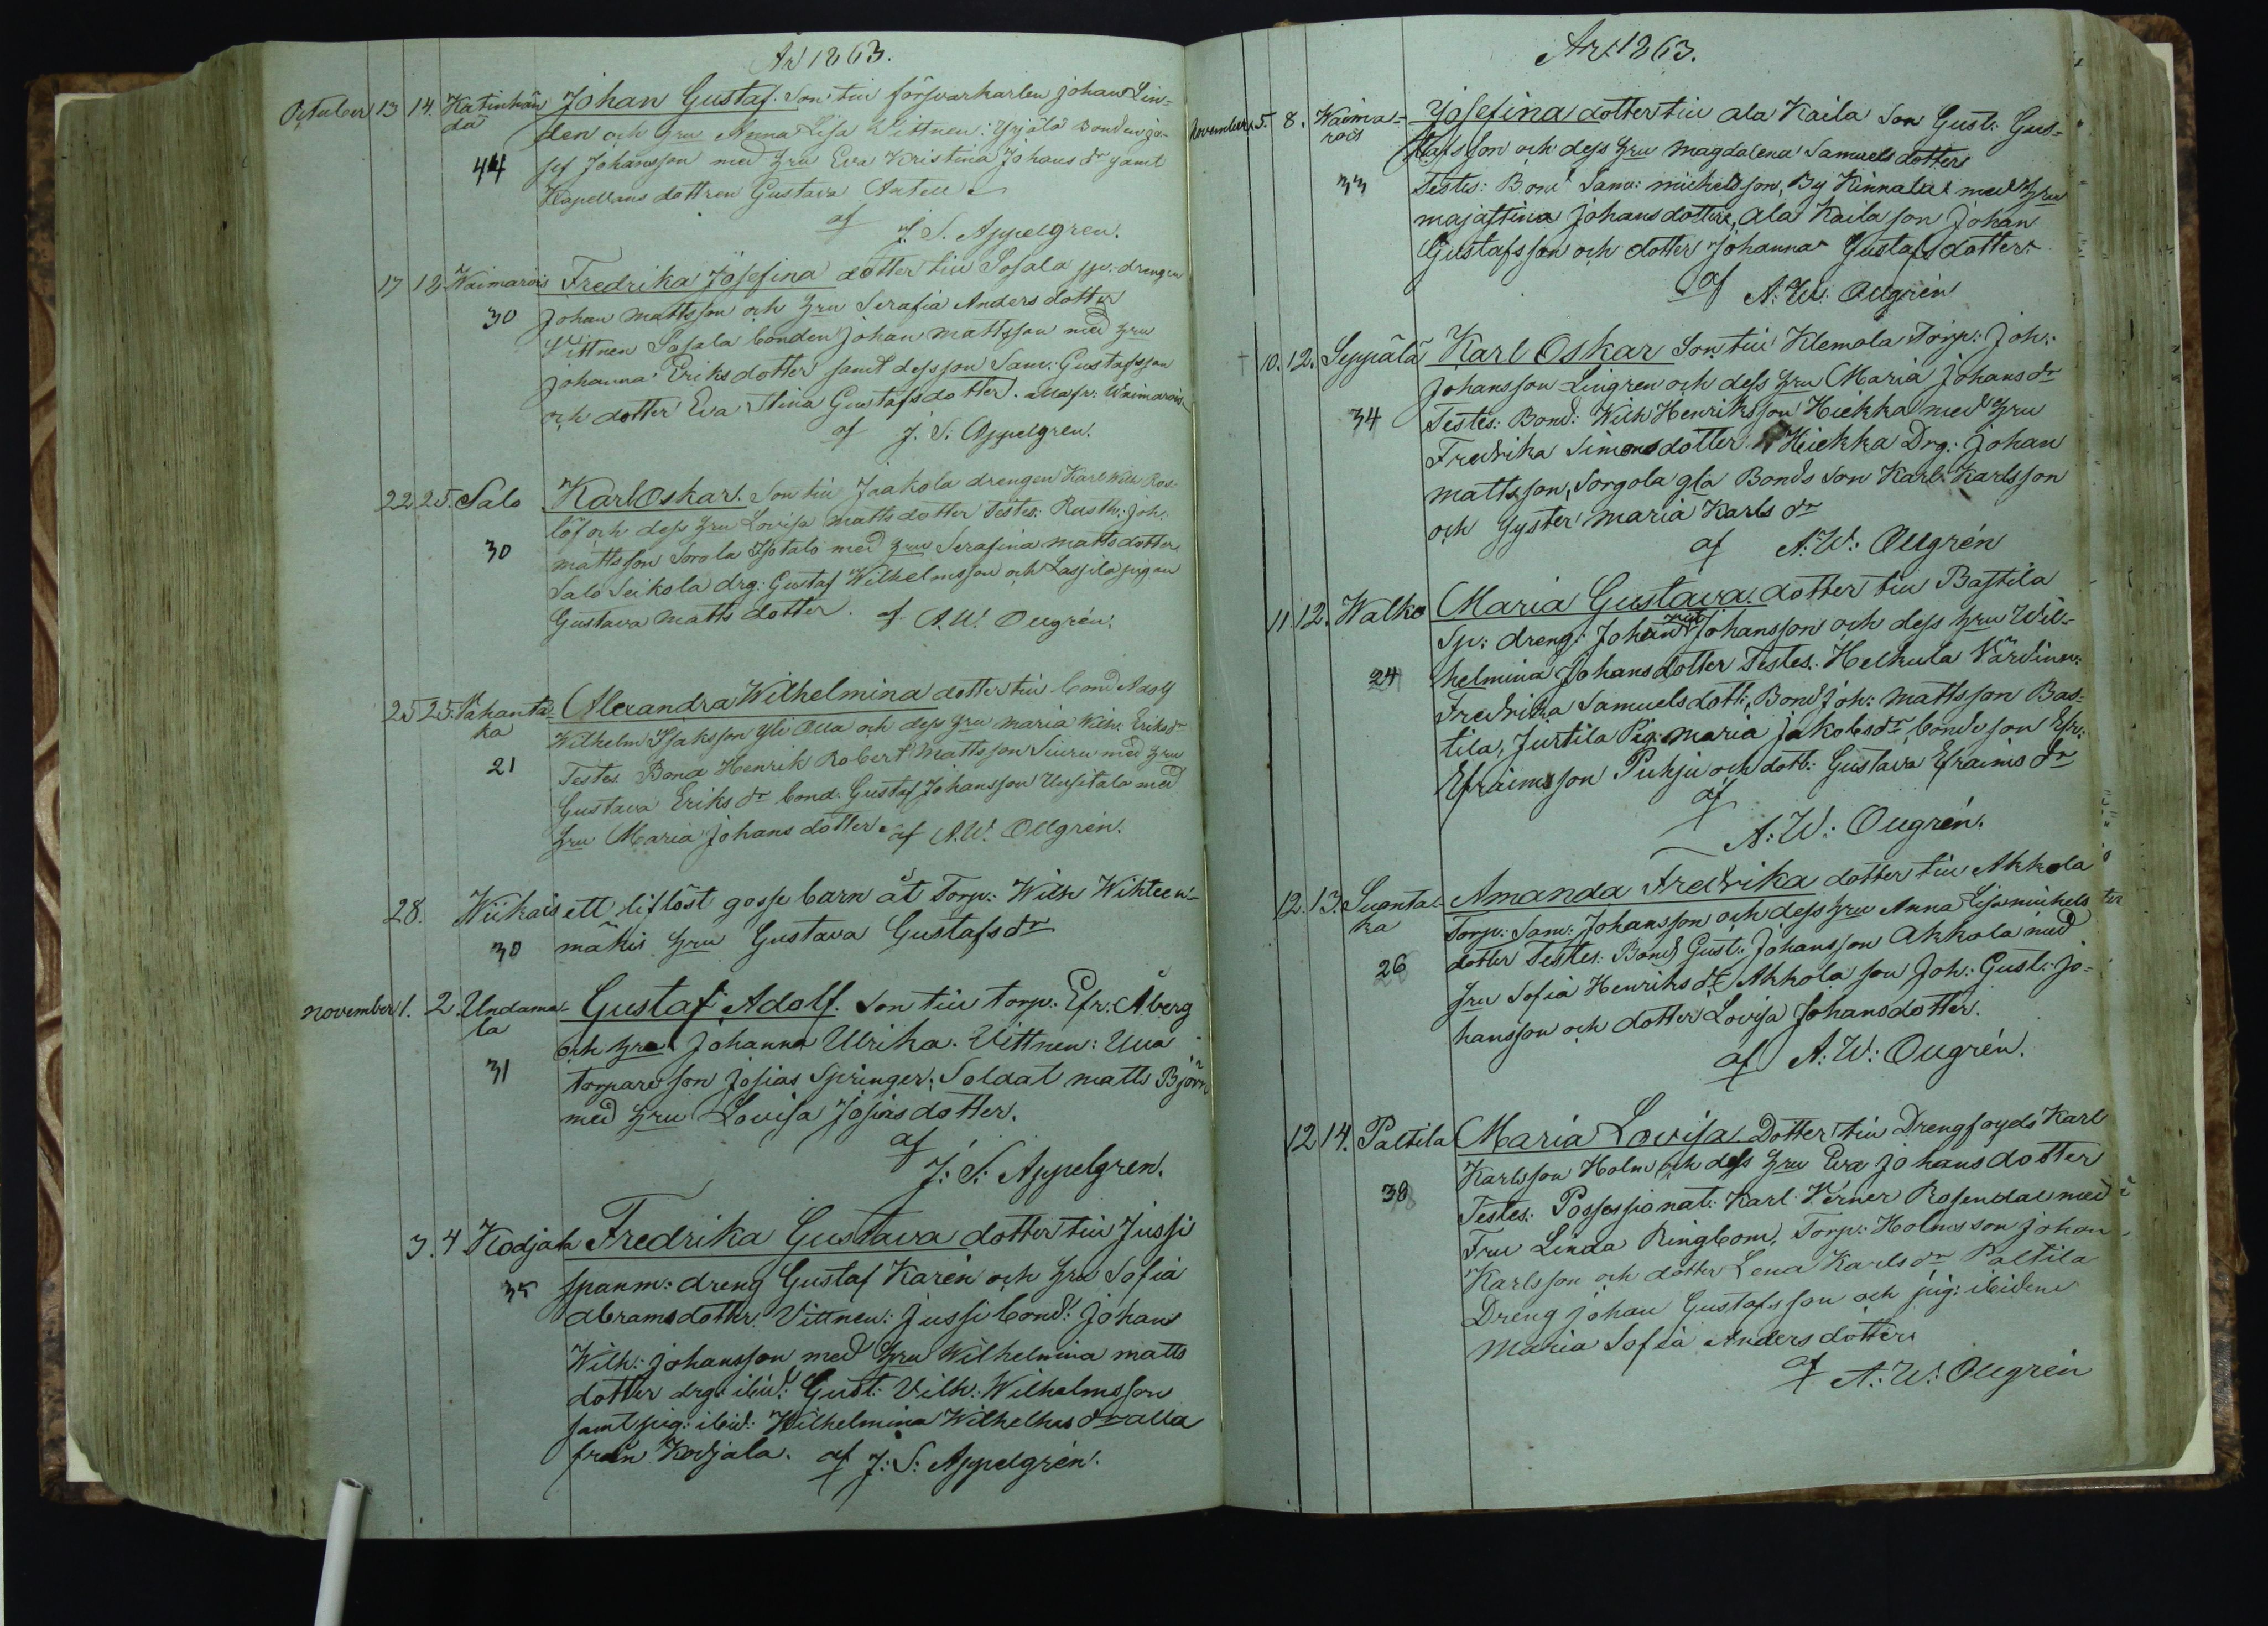 År 1863.
October 13 14. Katinhän Johan Gustaf. Son till försvarkarlen Johan Lin-
dä den och hru Anna Lisa Vittnen: Yrjälä Bonden Jo-
44 sef Johansson med hru Eva Kristina Johans dr samt
Kapellans dottren Gustava Antell
af J. S. Appelgren.
17 18 Kaimarois Fredrika Josefina dotter till Sofala sp. drengen
30 Johan Mattsson och hru Serafia Anders dotter
Vittnen Sofala bonden Johan Mattsson med hru
Johanna Eriksdotter samt dess son Sam: Gustafsson
och dotter Eva Stina Gustafsdotter. alla fr: Waimarois.
af J. S. Appelgren.
22 25. Salo Karl Oskar. Son till Jaakola drengen Karl Wilh Ros-
löf och dess hru Lovisa Mattsdotter Testes: Rusth: Joh:
30 Mattsson Sorola Isotalo med hru Serafina Mattsdotter
Salo Seikola drg. Gustaf Wilhelmsson och Lassila pigan
Gustava Matts dotter. af A. W. Ollgrén.
25 25. Vähänta- Alexandra Wilhelmina dotter till bond Adolf
ka Wilhelm Isaksson Yli Olla och dess hru Maria Wilh. Eriks dr
21 Testes Bond Henrik Robert Mattsson Siuru med hru
Gustava Eriks dr bond. Gustaf Johansson Uusitalo med
hru Maria Johans dotter. af A. W. Ollgrén.
28. Wiikais ett liflöst gosse barn åt Torp: Wilh Wihteen-
30 mäkis hru Gustava Gustafs dr
November 1. 2. Undama- Gustaf Adolf. Son till torp. Efr. Åberg
la och hru Johanna Ulrika. Vittnen:
31 torpare son Josias Springer, Soldat Matts Björn
med hru Lovisa Josias dotter.
af
J: S: Appelgren.
3. 4 Kodjala Fredrika Gustava dotter till Jussi
35 spanm: dreng Gustaf Karén och hru Sofia
Abramsdotter. Vittnen: Jussi bond: Johan
Wilh: Johansson med hru Wilhelmina Matts
dotter drg: ibid: Gust: Vilh: Wilhelmsson
samt pig: ibid: Wilhelmina Wilhelms dr alla
från Kodjala. af J: S: Appelgrén.
År 1863.
November 5. 8. Waima- Josefina dotter till Ala Kaila Son Gust: Gus-
rois tafsson och dess hru Magdalena Samuels dotter
33 Testes: Bond Sam: Mickelsson, By Kinnala med hru
Majastina Johansdotter, Ala Kaila son Johan
Gustafsson och dotter Johanna Gustafs dotter
af A: W: Ollgrén
† 10. 12. Seppälä Karl Oskar Son till Klemola Torp: Joh:
Johansson Lingren och dess hru Maria Johans dr
34 Testes: Bond: Wilh Henriksson Hiekka med hru
Fredrika Simonsdotter. Hiekka Drg: Johan
Mattsson, Sorgola gla Bonds Son Karl Karlsson
och syster Maria Karls dr
af A: W: Ollgrén
11. 12. Walko Maria Gustava. dotter till Bastila
Sp: dreng: Johan Johansson och dess hru Wil-
24 helmina Johansdotter Testes: Helkula Värdinn:
Fredrika Samuelsdott:, Bond Joh: Mattsson Bas-
tila, Juttila Pig: Maria Jakobs dr bonde son Efr:
Efraimsson Puhju och dott: Gustava Efraims dr
af
A: W: Ollgrén.
12. 13. Suonta- Amanda Fredrika dotter till Ahkola
ka Torp: Sam: Johansson och dess hru Anna Lisa Mickels
26 dotter Testes: Bond Gust: Johansson Ahkola med
hru Sofia Henriks dr, Ahkola son Joh: Gust: Jo-
hansson och dotter Lovisa Johansdotter.
af A: W: Ollgrén.
12 14. Paltila Maria Lovisa Dotter till Drengfogds Karl
Karlsson Holm och dess hru Eva Johansdotter
38 Testes: Possessionat: Karl Verner Rosendal med
Fru Linda Ringbom, Torp: Holms son Johan
Karlsson och dotter Lena Karls dr Paltila
Dreng Johan Gustafsson och pig: ibidem
Maria Sofia Anders dotter
af A: W: Ollgrén